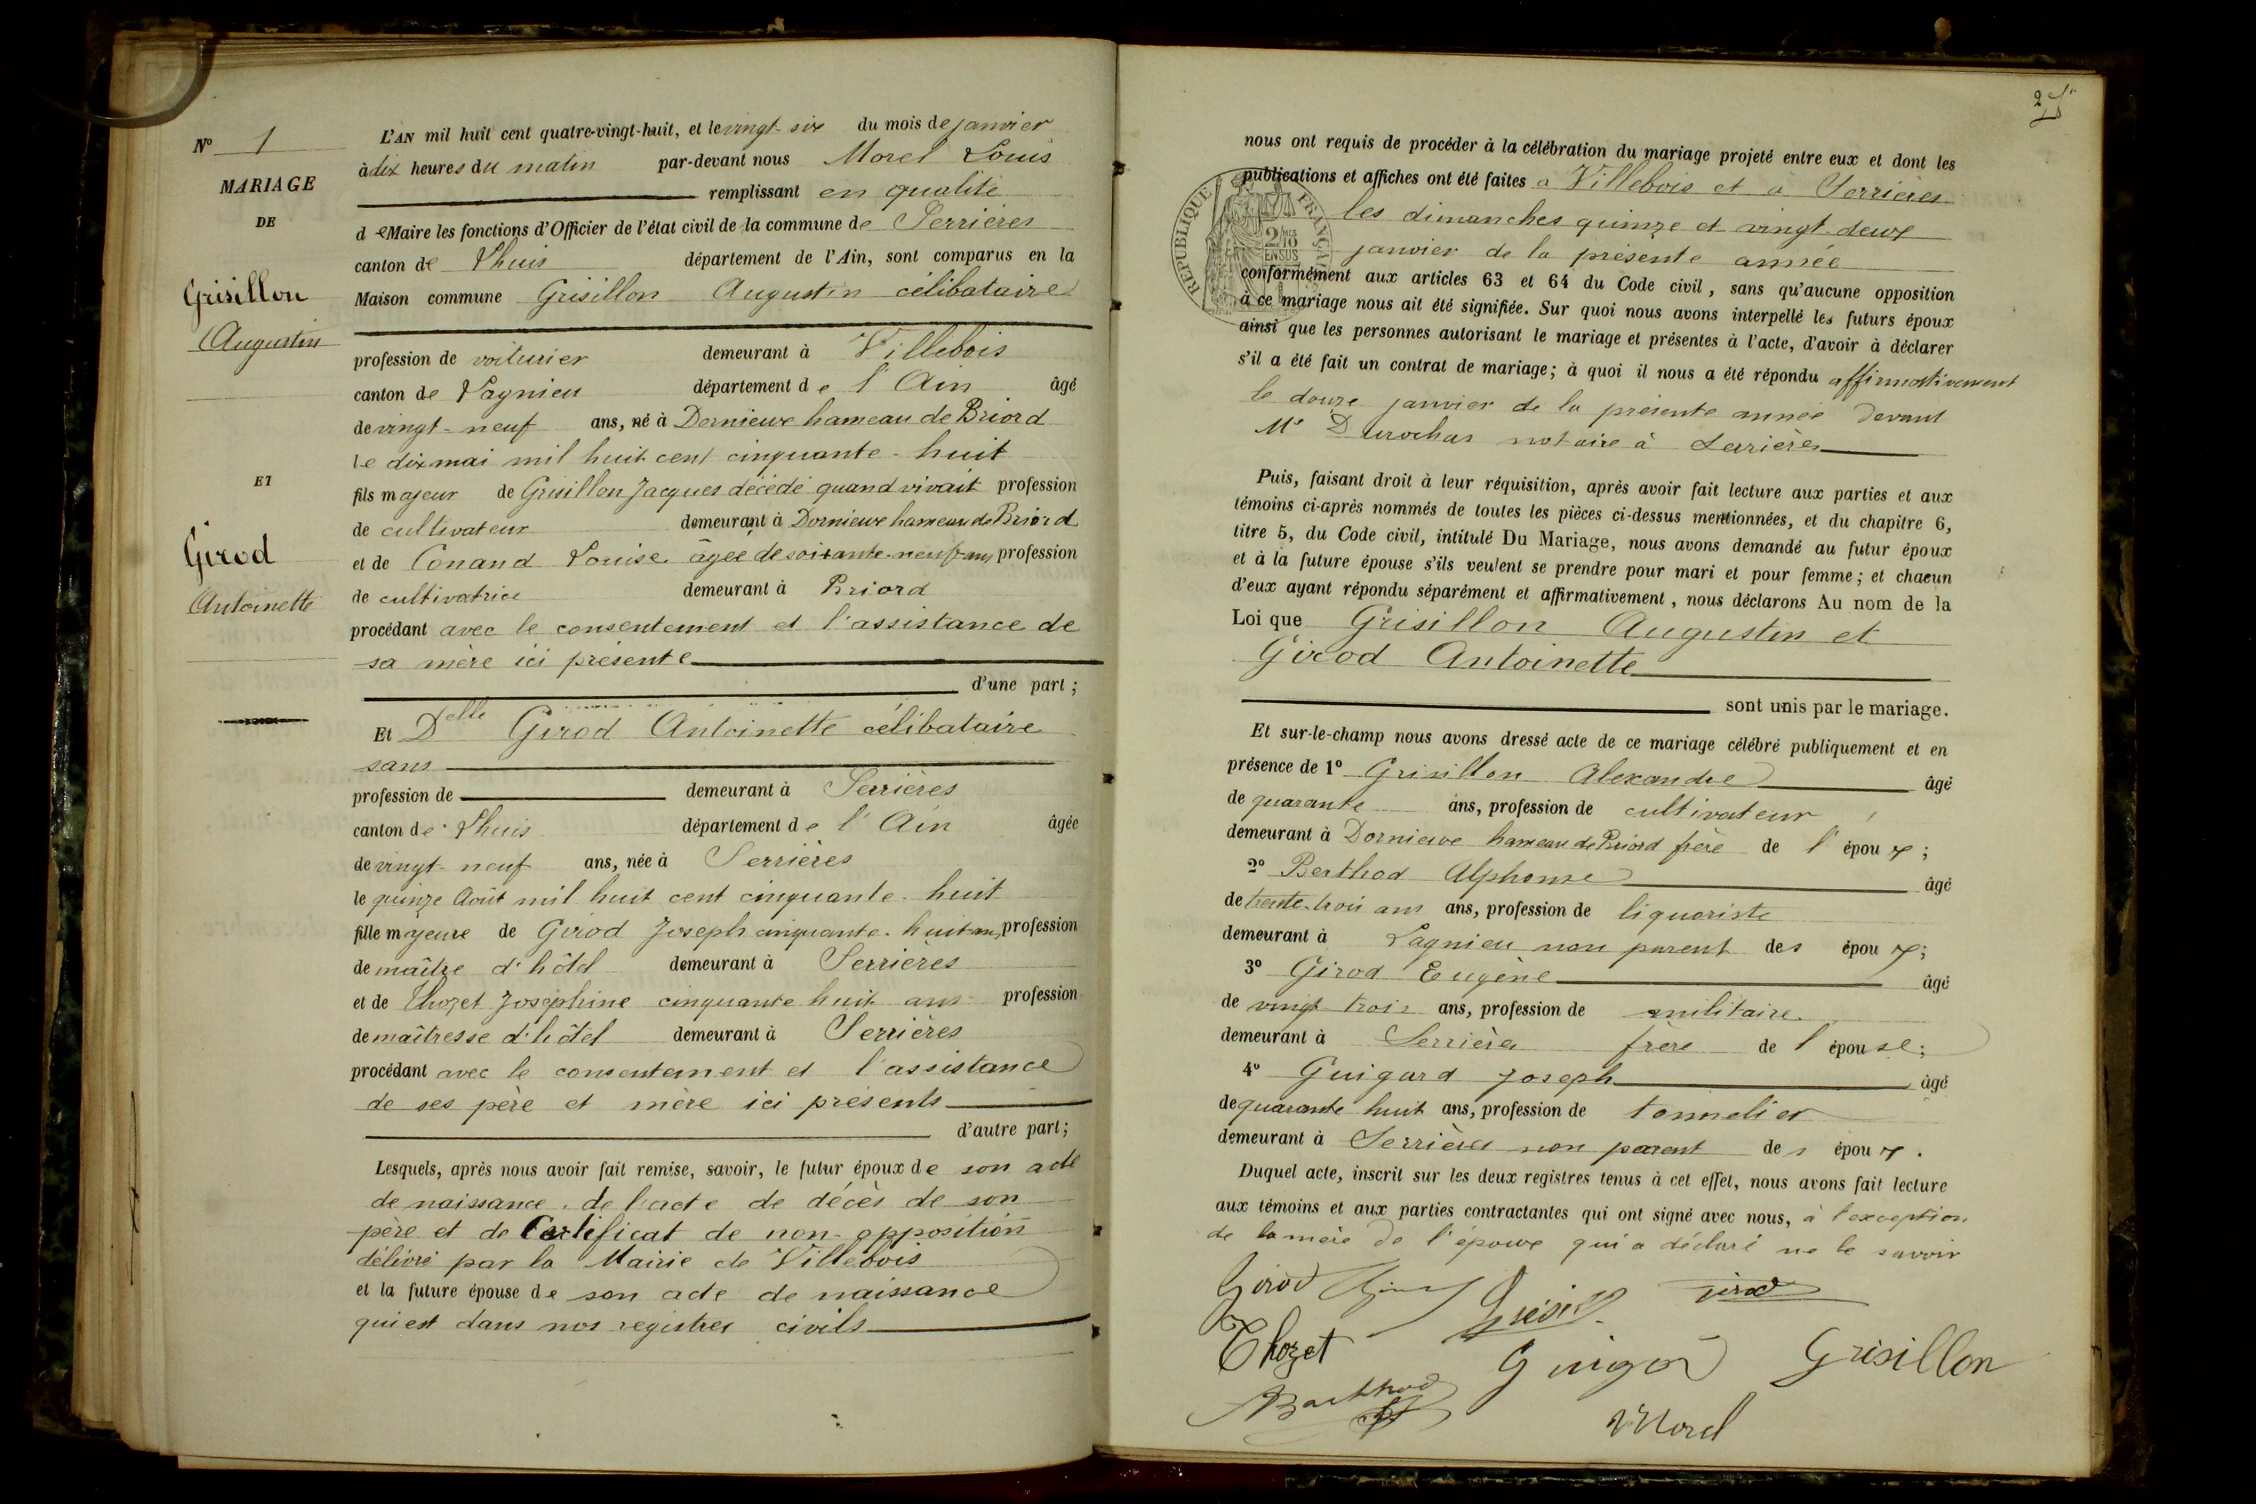 N° 1
MARIAGE
DE
Grisillon
Augustin
ET
Girod
Antoinette
L'AN mil huit cent quatre-vingt-huit, et le vingt-six du mois de janvier
à dix heures du matin par-devant nous Morel Louis
remplissant en qualité
d e Maire les fonctions d'Officier de l'état civil de la commune de Serrières
canton de Lhuis département de l'Ain, sont comparus en la
Maison commune Grisillon Augustin célibataire
profession de voiturier demeurant à Villebois
canton de Lagnieu département de l'Ain âgé
de vingt-neuf ans, né à Dornieux hameau de Briord
le dix mai mil huit cent cinquante-huit
fils majeur de Grisillon Jacques décédé quand vivait profession
de cultivateur demeurant à Dornieux hameau de Briord
et de Conand Louise âgée de soixante-neuf ans profession
de cultivatrice demeurant à Briord
procédant avec le consentement et l'assistance de
sa mère ici présente
d'une part ;
Et Delle Girod Antoinette célibataire
sans
profession de demeurant à Serrières
canton de Lhuis département de l'Ain âgée
de vingt-neuf ans, née à Serrières
le quinze Août mil huit cent cinquante-huit
fille majeure de Girod Joseph cinquante-huit ans profession
de maître d'hôtel demeurant à Serrières
et de Thozet Joséphine cinquante huit ans profession
de maîtresse d'hôtel demeurant à Serrières
procédant avec le consentement et l'assistance
de ses père et mère ici présents
d'autre part ;
Lesquels, après nous avoir fait remise, savoir, le futur époux de son acte
de naissance, de l'acte de décès de son
père et de Certificat de non-opposition
délivré par la Mairie de Villebois
et la future épouse de son acte de naissance
qui est dans nos registres civils
2
nous ont requis de procéder à la célébration du mariage projeté entre eux et dont les
publications et affiches ont été faites a Villebois et à Serrières
les dimanches quinze et vingt-deux
janvier de la présente année
RÉPUBLIQUE FRANÇAISE
2/10 EN SUS
conformément aux articles 63 et 64 du Code civil, sans qu'aucune opposition
à ce mariage nous ait été signifiée. Sur quoi nous avons interpellé les futurs époux
ainsi que les personnes autorisant le mariage et présentes à l'acte, d'avoir à déclarer
s'il a été fait un contrat de mariage ; à quoi il nous a été répondu affirmativement
le douze janvier de la présente année devant
Me Durochas notaire à Serrières
Puis, faisant droit à leur réquisition, après avoir fait lecture aux parties et aux
témoins ci-après nommés de toutes les pièces ci-dessus mentionnées, et du chapitre 6,
titre 5, du Code civil, intitulé Du Mariage, nous avons demandé au futur époux
et à la future épouse s'ils veulent se prendre pour mari et pour femme ; et chacun
d'eux ayant répondu séparément et affirmativement, nous déclarons Au nom de la
Loi que Grisillon Augustin et
Girod Antoinette
sont unis par le mariage.
Et sur-le-champ nous avons dressé acte de ce mariage célébré publiquement et en
présence de 1° Grisillon Alexandre âgé
de quarante ans, profession de cultivateur
demeurant à Dornieux hameau de Briord frère de l'époux ;
2° Berthod Alphonse âgé
de trente-trois ans ans, profession de liquoriste
demeurant à Lagnieu non parent des époux ;
3° Girod Eugène âgé
de vingt trois ans, profession de militaire
demeurant à Serrières frère de l'épouse ;
4° Guigard Joseph âgé
de quarante huit ans, profession de tonnelier
demeurant à Serrières non parent des époux .
Duquel acte, inscrit sur les deux registres tenus à cet effet, nous avons fait lecture
aux témoins et aux parties contractantes qui ont signé avec nous, à l'exception
de la mère de l'époux qui a déclaré ne le savoir
Girod Girod
Thozet Guigar Grisillon
Berthod
Morel